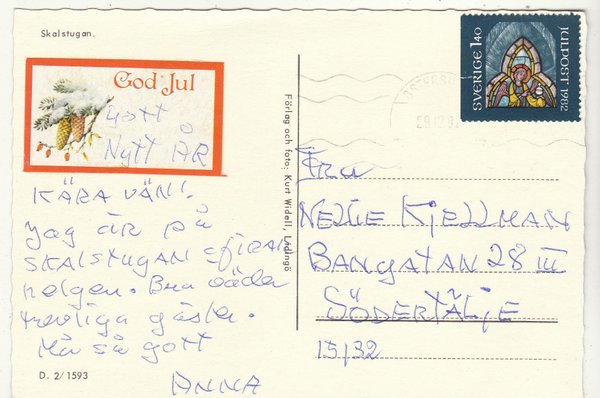 Skalstugan.
God Jul
Gott
Nytt ÅR
KÄRA VÄN!
Jag är på
SKALSTUGAN
helgen. Bra väder
trevliga gäster.
Må så gott
ANNA
D. 2/1593
Förlag och foto: Kurt Widell, Lidingö
SVERIGE 140
JULPOST 1982
Fru
NELLIE KJELLMAN
BANGATAN 28 III
SÖDERTÄLJE
15132